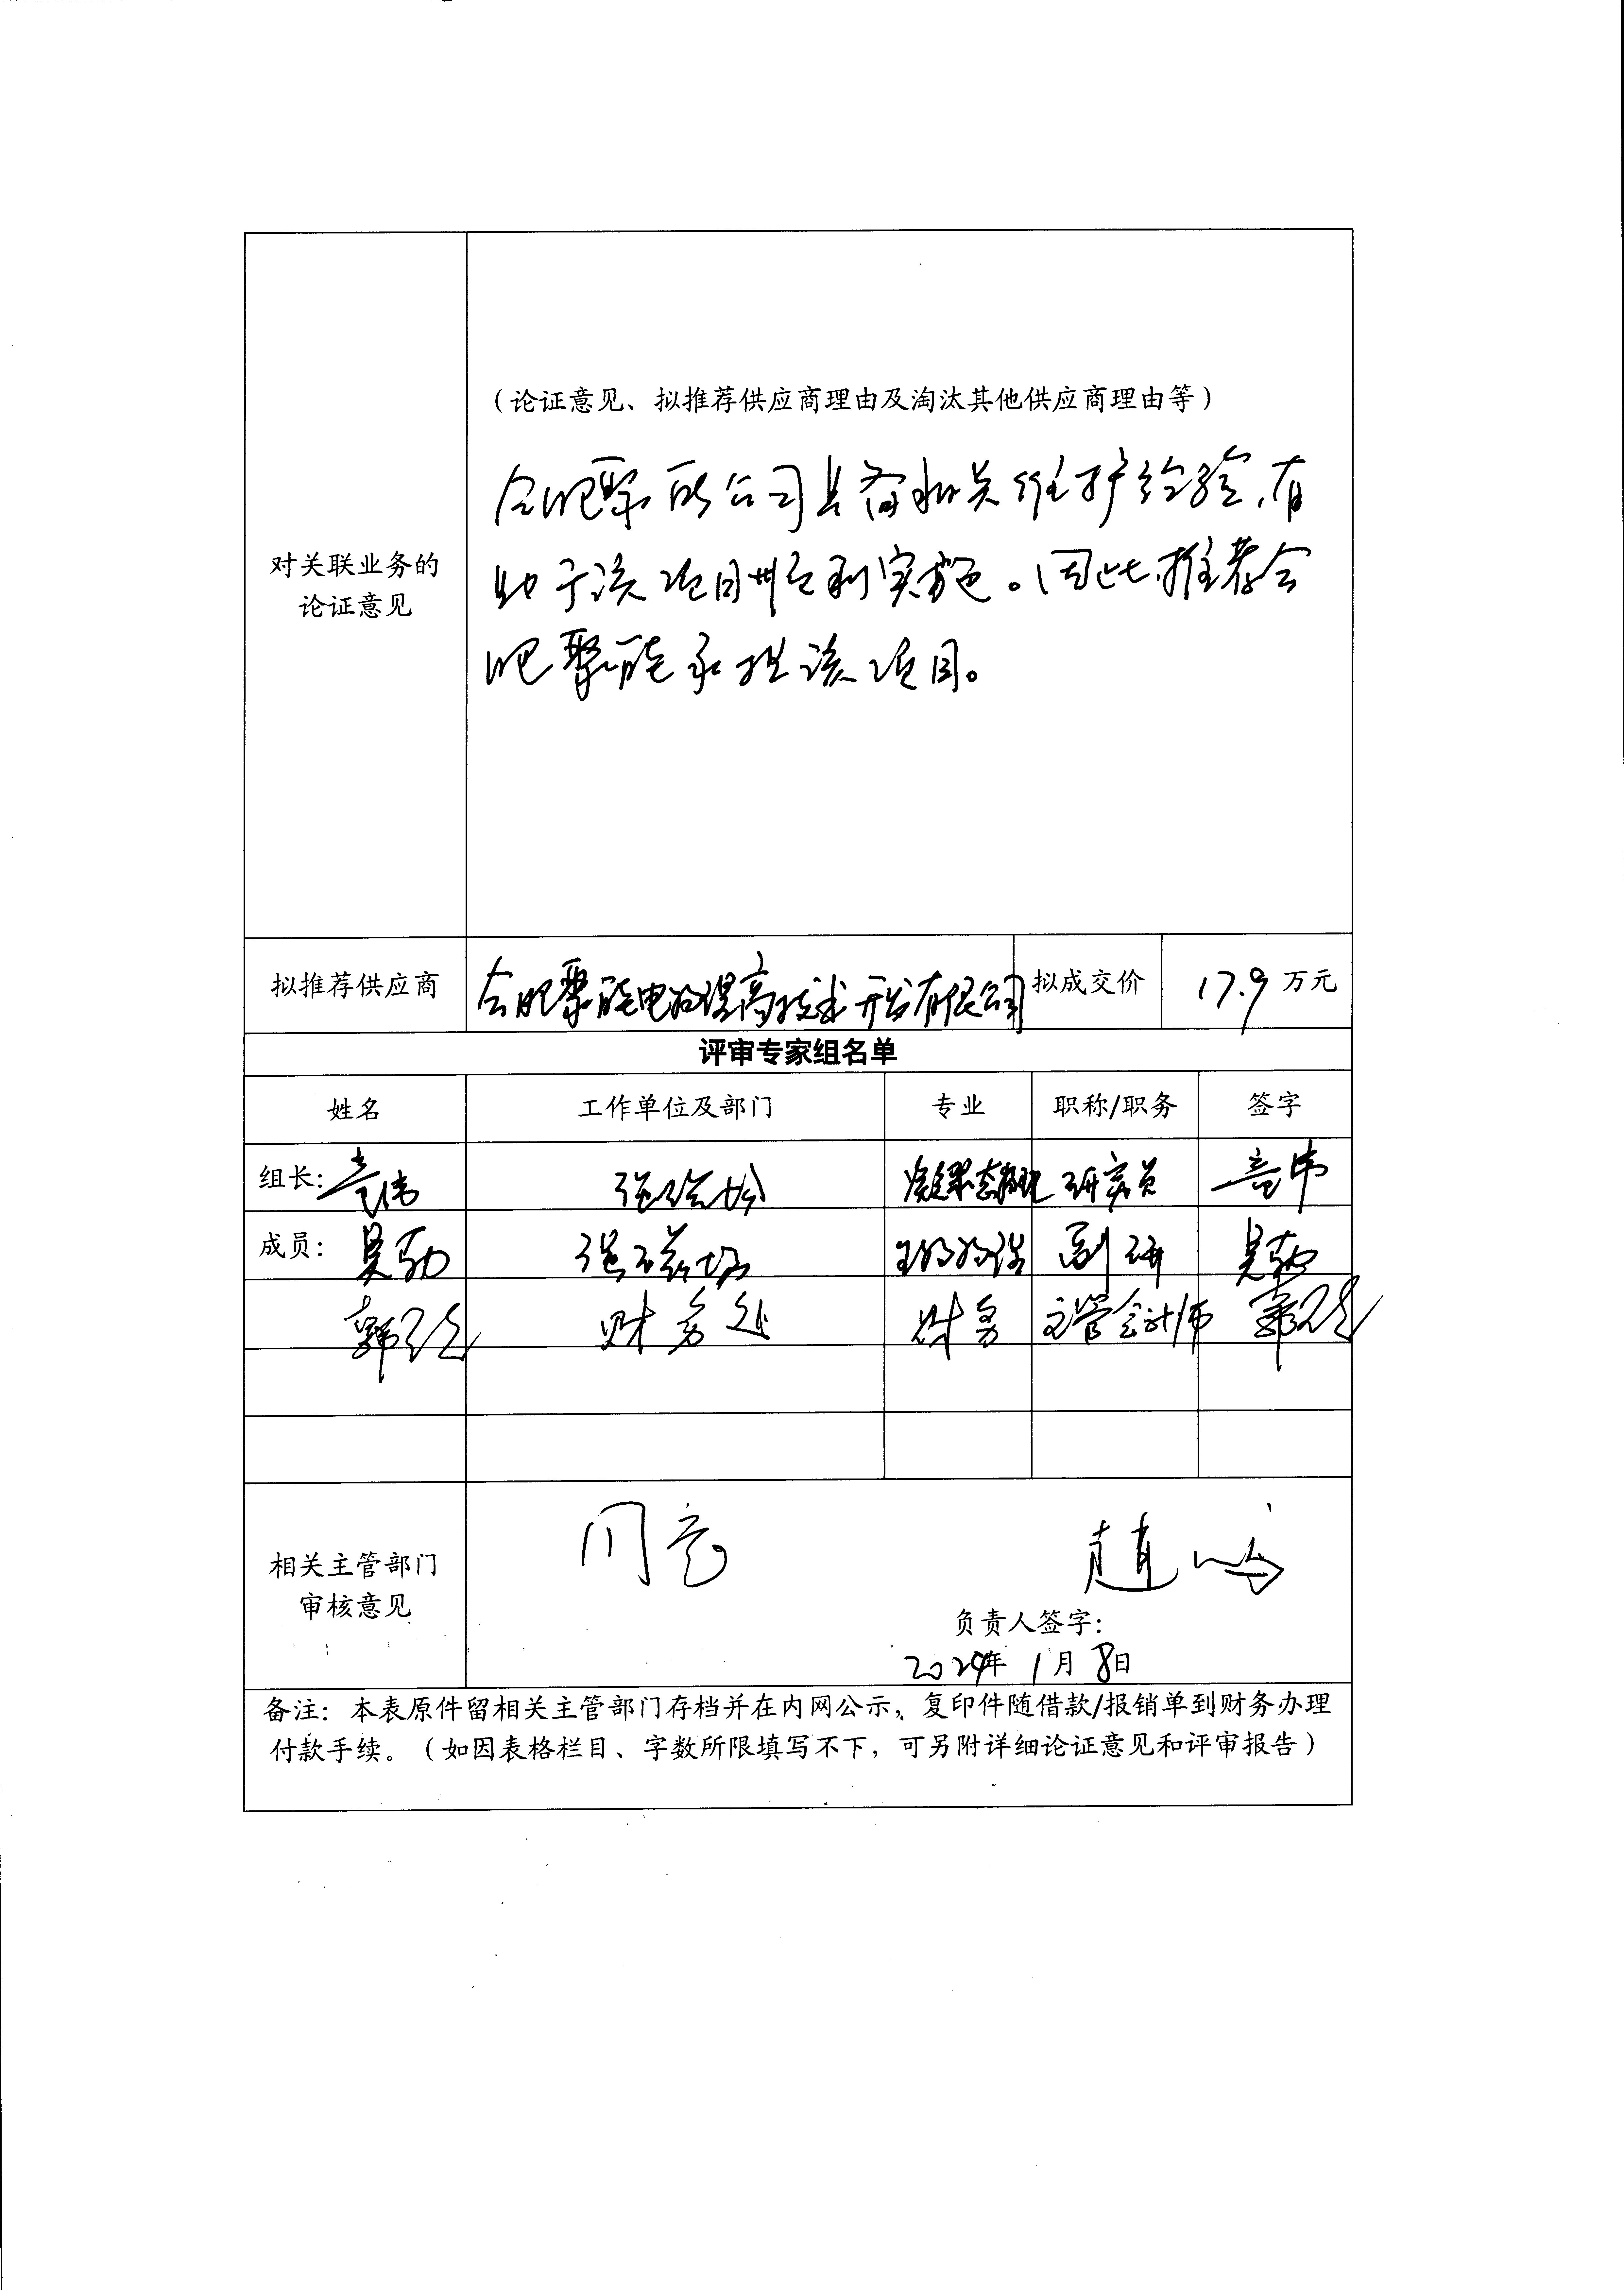 （论证意见、拟推荐供应商理由及淘汰其他供应商理由等）
合肥聚能公司具备相关维护经验，有
助于该项目顺利实施。因此，推荐合
肥聚能承担该项目。
对关联业务的
论证意见
拟推荐供应商 合肥聚能电物理高技术开发有限公司 拟成交价 17.9 万元
评审专家组名单
姓名 工作单位及部门 专业 职称/职务 签字
组长： 强磁场 凝聚态物理 研究员
成员： 吴 强磁场 副研 吴
郭 财务处 财务 主管会计师 郭
相关主管部门
审核意见
同意 赵
负责人签字：
2024年 1月 8日
备注：本表原件留相关主管部门存档并在内网公示，复印件随借款/报销单到财务办理
付款手续。（如因表格栏目、字数所限填写不下，可另附详细论证意见和评审报告）